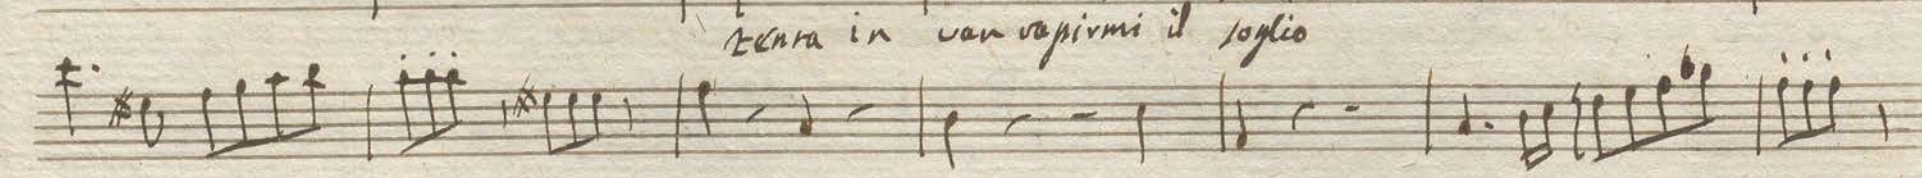 tenta in van rapirmi il soglio